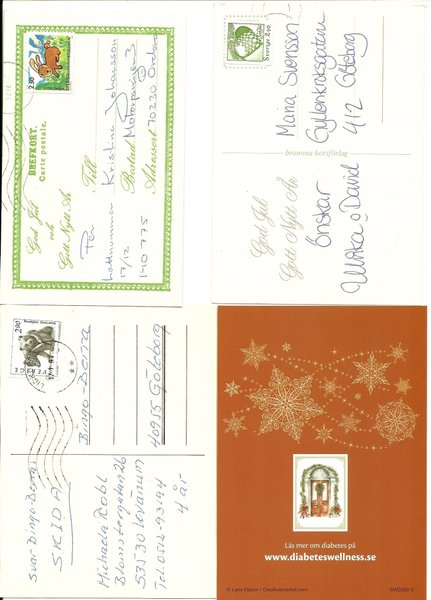 BREFKORT.
Carte postale.
God Jul
och
Gott Nytt År
Till
Fru
Kristina Johansson
Bostad Motorgatan 3
Adressort 70230 Örebro
lottnummer
17/12
140 775
2.90
Sverige 2.80
Maria Svensson
Gyllenkroksgatan
412 Göteborg
bromma kortförlag
God Jul
Gott Nytt År
Önskar
Ulrika o David
2.90
SVERIGE
Bingo-Berra
40955 Göteborg
Svar Bingo-Berra:
SKIDA
Michaela Dobl
Blomstergatan 26
53530 Kvänum
Tel. 0512-93144
4 år
Läs mer om diabetes på
www.diabeteswellness.se
SW2550-3